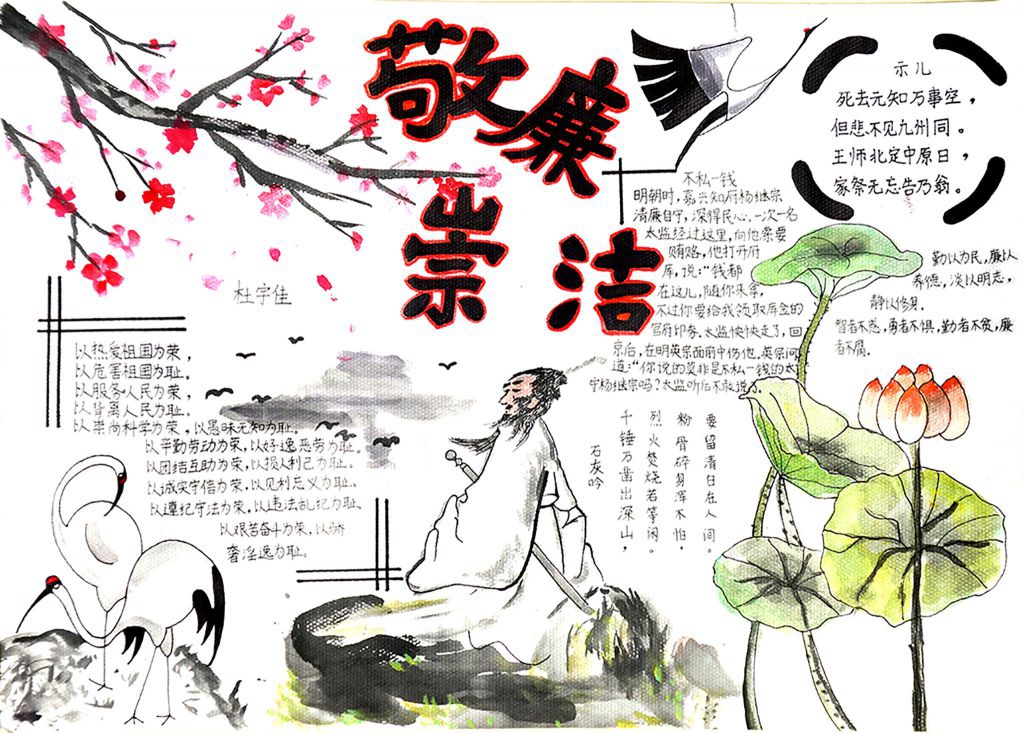 敬廉
崇洁
示儿
死去元知万事空，
但悲不见九州同。
王师北定中原日，
家祭无忘告乃翁。
不私一钱
明朝时，嘉兴知府杨继宗
清廉自守，深得民心。一次一名
太监经过这里，向他索要
贿赂，他打开府
库，说：“钱都
在这儿，随你来拿，
不过你要给我领取库金的
官府印券。太监怏怏走了，回
京后，在明英宗面前中伤他。英宗问
道：“你说的莫非是不私一钱的太
守杨继宗吗？太监听后不敢说了
勤以为民，廉以
养德，淡以明志，
静以修身。
智者不惑，勇者不惧，勤者不贫，廉
者不腐。
杜宇佳
以热爱祖国为荣，
以危害祖国为耻。
以服务人民为荣，
以背离人民为耻。
以崇尚科学为荣，以愚昧无知为耻。
以辛勤劳动为荣，以好逸恶劳为耻。
以团结互助为荣，以损人利己为耻。
以诚实守信为荣，以见利忘义为耻。
以遵纪守法为荣，以违法乱纪为耻。
以艰苦奋斗为荣，以骄
奢淫逸为耻。
石灰吟
千锤万凿出深山，
烈火焚烧若等闲。
粉骨碎身浑不怕，
要留清白在人间。